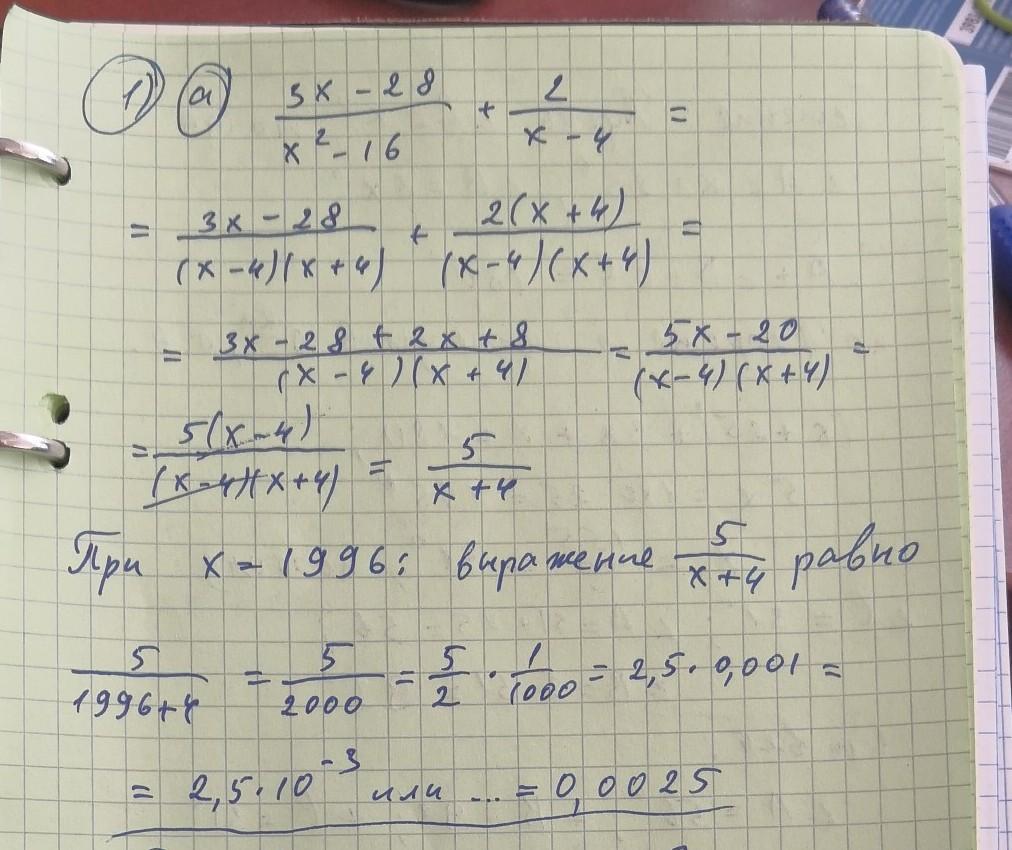 1) а) (3x - 28)/(x² - 16) + 2/(x - 4) =
= (3x - 28)/((x - 4)(x + 4)) + 2(x + 4)/((x - 4)(x + 4)) =
= (3x - 28 + 2x + 8)/((x - 4)(x + 4)) = (5x - 20)/((x - 4)(x + 4)) =
= 5(x - 4)/((x - 4)(x + 4)) = 5/(x + 4)
При x = 1996: выражение 5/(x + 4) равно
5/(1996 + 4) = 5/2000 = 5/2 · 1/1000 = 2,5 · 0,001 =
= 2,5 · 10⁻³ или ... = 0,0025